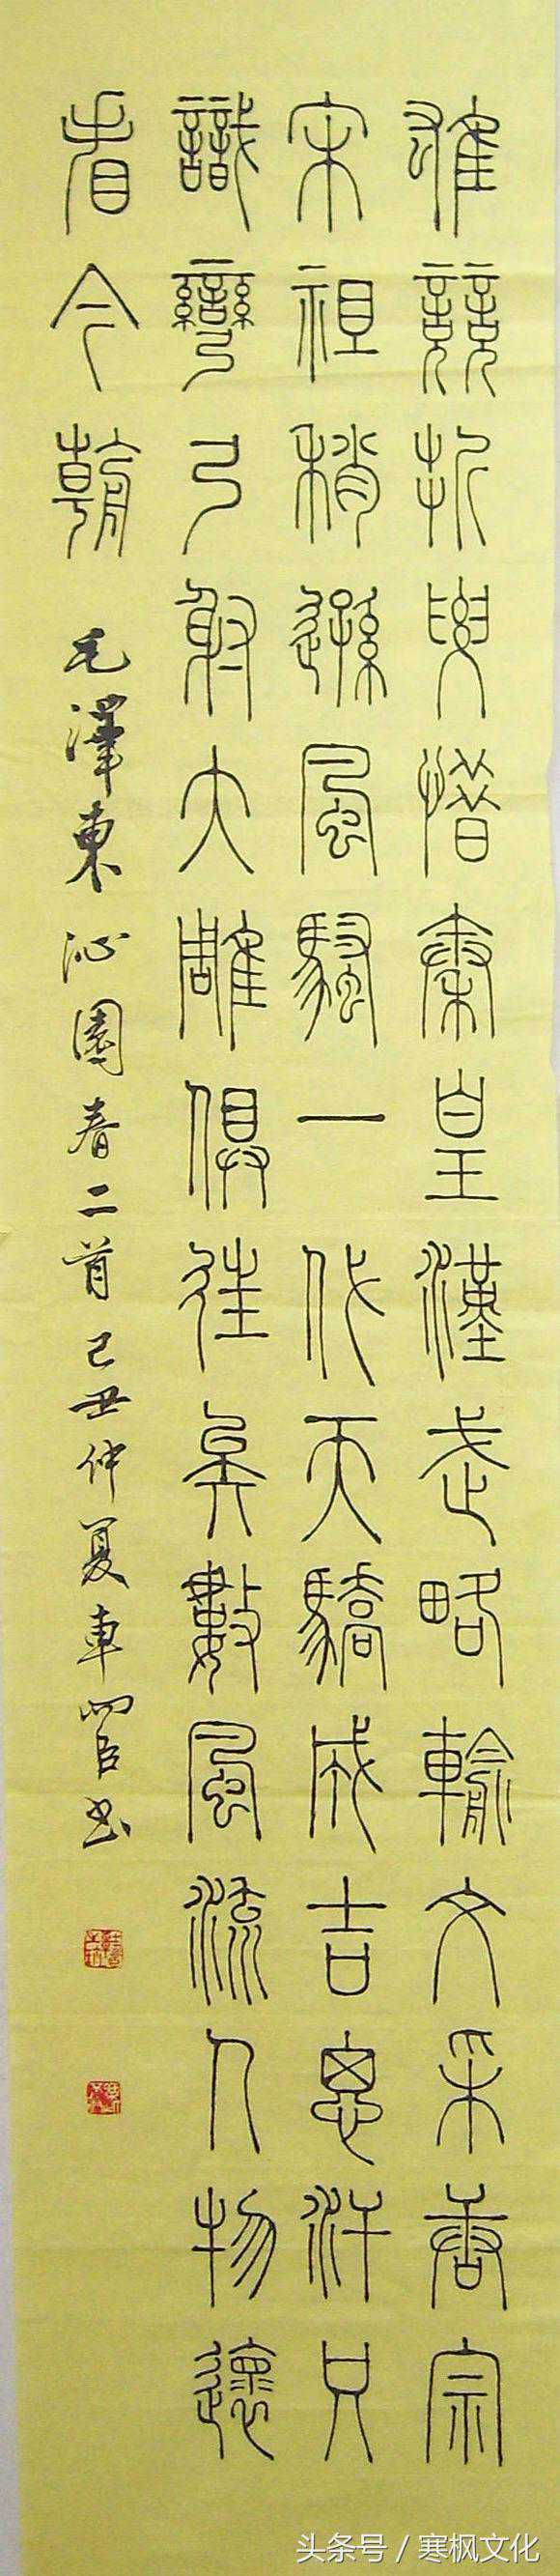 雄競折要惜秦皇漢武略輸文采唐宗
宋祖稍遜風騷一代天驕成吉思汗只
識彎弓射大雕俱往矣數風流人物還
看今朝 毛澤東沁園春二首己丑仲夏車书
头条号 / 寒枫文化